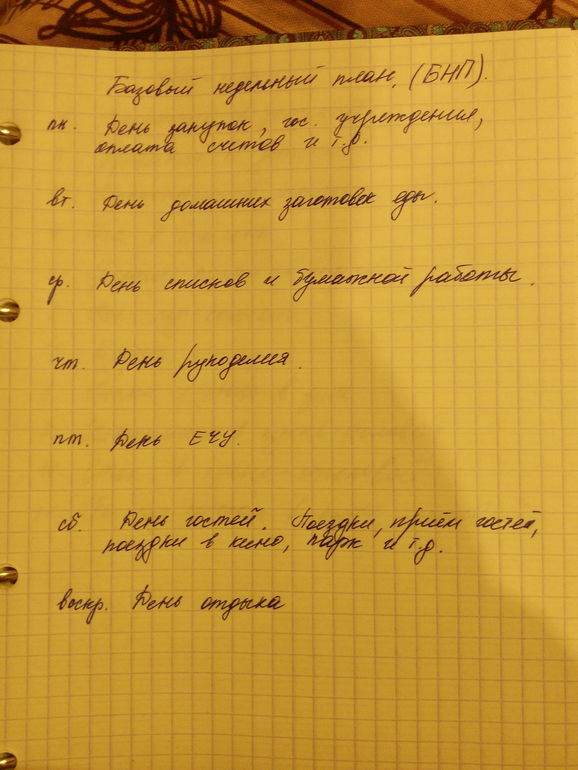 Базовый недельный план. (БНП).
пн. День закупок, гос. учреждения,
оплата счетов и т.д.
вт. День домашних заготовек еды.
ср. День списков и бумажной работы.
чт. День рукоделия.
пт. День ЕЧУ.
сб. День гостей. Поездки, приём гостей,
поездки в кино, парк и т.д.
воскр. День отдыха